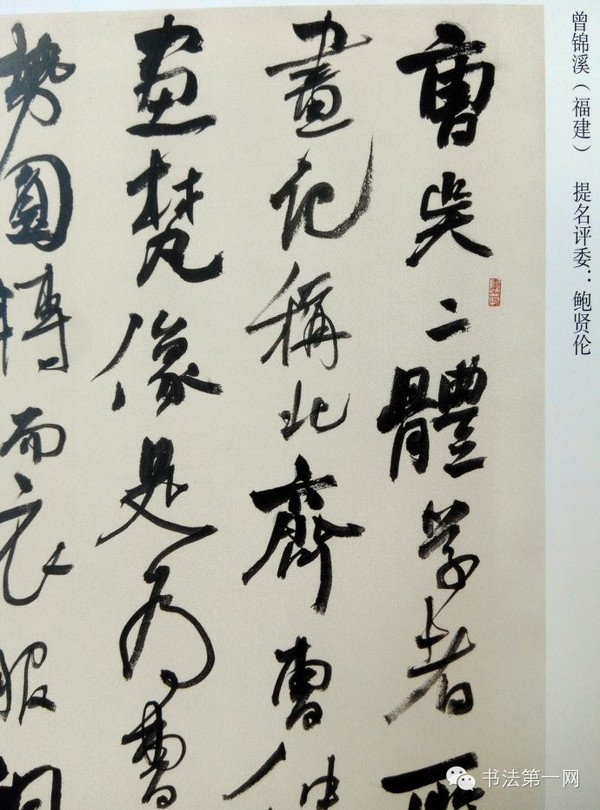 曾锦溪（福建） 提名评委：鲍贤伦
曹吴二體学者所
畫记稱北齊曹仲
畫梵像是为曹
势圓轉而衣服
书法第一网